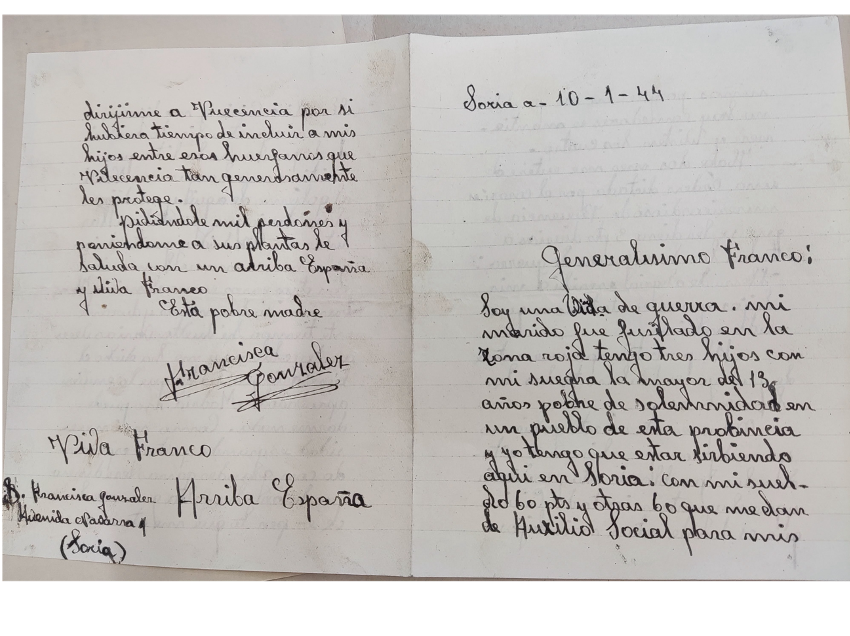 Soria a - 10 - 1 - 44
Generalisimo Franco:
Soy una Vida de guerra. mi
marido fue fusilado en la
zona roja tengo tres hijos con
mi suegra la mayor de 13
años pobre de solemnidad en
un pueblo de esta probincia
y yo tengo que estar sirbiendo
aqui en Soria: con mi suel-
do 60 pts y otras 60 que me dan
de Auxilio Social para mis
dirijirme a Vuecencia por si
hubiera tiempo de incluir a mis
hijos entre esos huerfanos que
Vuecencia tan generosamente
les protege.
Pidiéndole mil perdones y
poniendome a sus plantas le
saluda con un arriba España
y viva Franco
Esta pobre madre
Francisca
Gonzalez
Viva Franco
Arriba España
Francisca Gonzalez
Avenida Navarra 4
(Soria)